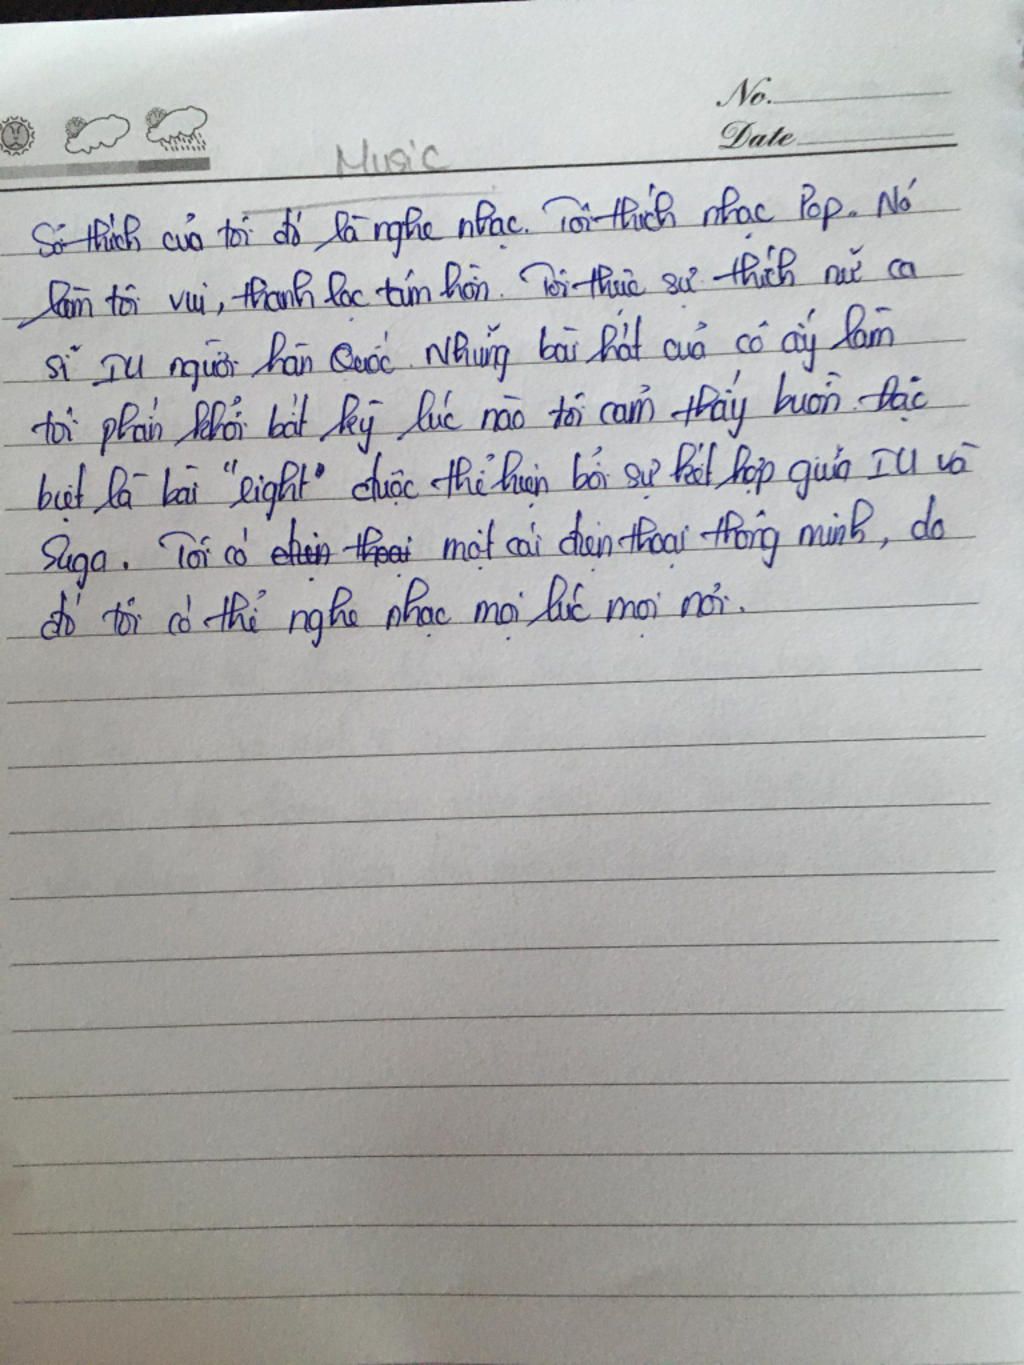 No.
Date
Music
Sở thích của tôi đó là nghe nhạc. Tôi thích nhạc Pop. Nó
làm tôi vui, thanh lọc tâm hồn. Tôi thực sự thích nữ ca
sĩ IU người hàn Quốc. Những bài hát của cô ấy làm
tôi phấn khởi bất kỳ lúc nào tôi cảm thấy buồn. Đặc
biệt là bài "eight" được thể hiện bởi sự kết hợp giữa IU và
Suga. Tôi có điện thoại một cái điện thoại thông minh, do
đó tôi có thể nghe nhạc mọi lúc mọi nơi.